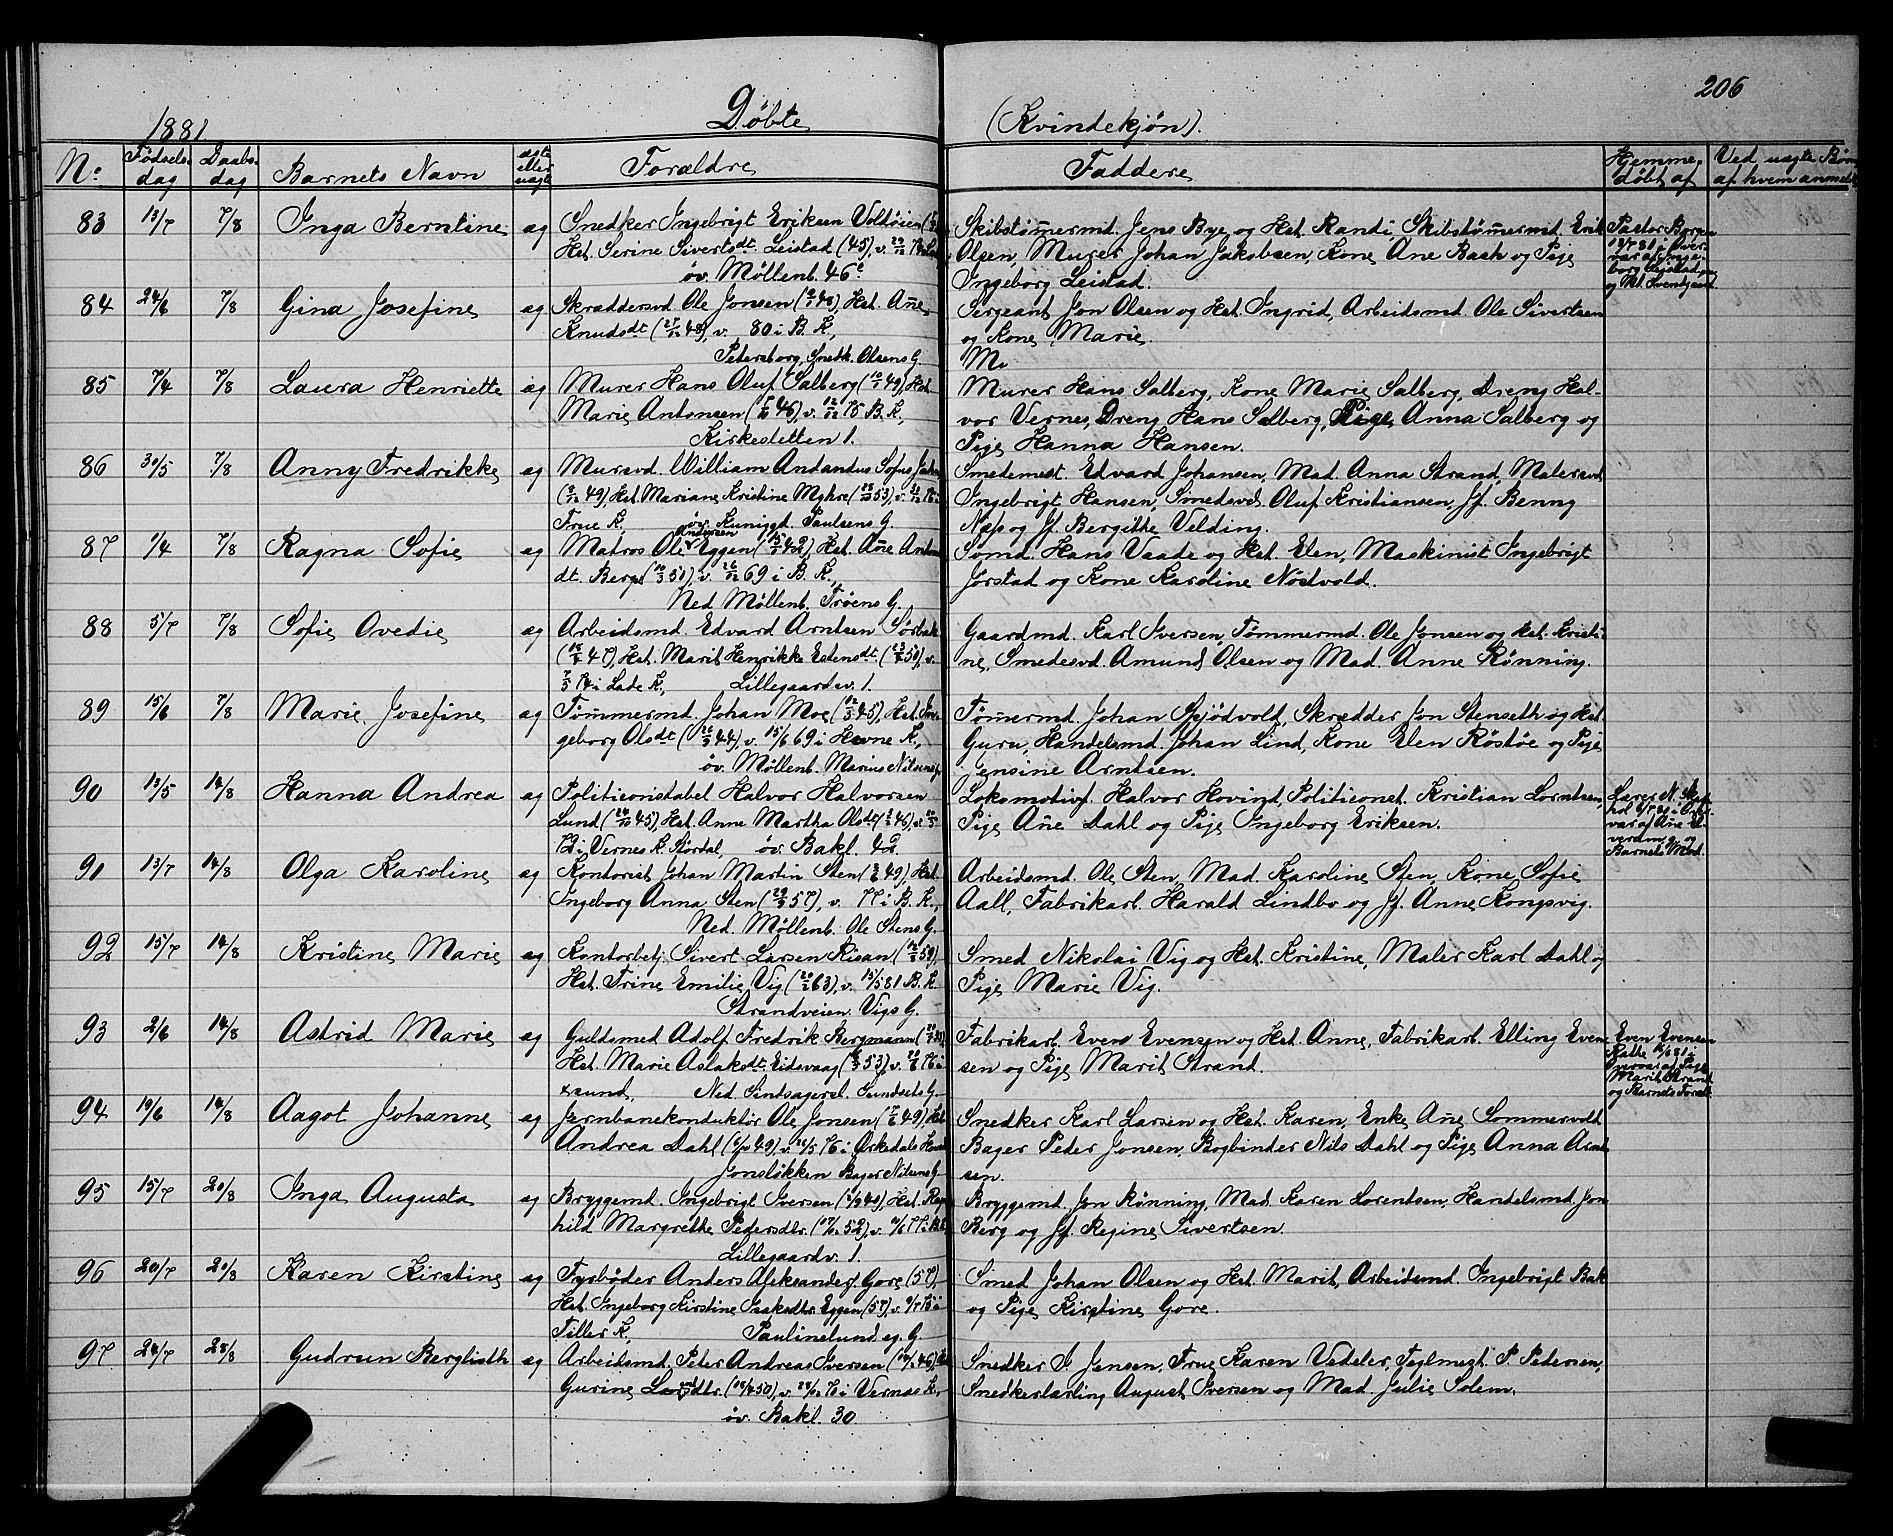 206
1881 Døbte (Kvindekjøn).
No. Fødsels- dag Daabs- dag Barnets Navn ægte eller uægte Forældre Faddere Hjemme- døbt af Ved uægte Børn af hvem anmeldt
83 13/7 7/8 Inga Berntine æg Snedker Ingebrigt Eriksen Voldøien
Hst. Serine Sivertsdt. Leistad (45), v.
øv. Møllenb. 46
Skibstømermd. Jens Bye og Hst. Randi, Skibstømermd. Erik
Olsen, Murer Johan Jakobsen, Kone Ane Bash og Pige
Ingeborg Leistad.
Pastor Borgen
84 24/6 7/8 Gina Josefine æg Skræddersvd. Ole Jonsen (48), Hst. Ane
Knudsdt (48), v. 80 i B. K.,
Petersborg, Snedk. Olsens G.
Sergeant Jon Olsen og Hst. Ingrid, Arbeidsmd. Ole Sivertsen
og Kone Marie.
M.
85 7/4 7/8 Laura Henriette æg Murer Hans Oluf Salberg (49), Hst.
Marie Antonsen (46), v. 75 B. K.,
Kirkesletten 1.
Murer Hans Salberg, Kone Marie Salberg, Dreng Hal-
vor Vernes, Dreng Hans Salberg, Pige Anna Salberg og
Pige Hanna Hansen.
86 30/5 7/8 Anny Fredrikke æg Mursvd. William Andandus Sofus
(49), Hst. Mariane Kristine Myhre (53), v.
Frue K. øv. Kuniggd. Paulsens G.
Smedemest. Edvard Johansen, Mad. Anna Strand, Malersvd
Ingebrigt Hansen, Smedesvd. Oluf Kristiansen, Jf. Benny
Næss og Jf. Bergithe Velding.
87 1/4 7/8 Ragna Sofie æg Matros Ole Andersen Eggen (42), Hst. Ane
dt. Berge (50), v. 69 i B. K.,
Ned. Møllenb. Trøens G.
Sømd. Hans Vaade og Hst. Elen, Maskinist Ingebrigt
Jørstad og Kone Karoline Nøstvold.
88 5/7 7/8 Sofie Ovedie æg Arbeidsmd. Edvard Arntsen
(47), Hst. Marit Henrikke Estensdt (50), v.
74 i Lade K., Lillegaardsv. 1.
Gaardmd. Karl Iversen, Tømmermd. Ole Jonsen og Hst. Kristi-
ne, Smedesvd. Amund Olsen og Mad. Anne Rønning.
89 15/6 7/8 Marie Josefine æg Tømmermd. Johan Moe (45), Hst. In-
geborg Olsdt (44), v. 15/6 69 i Hevne K.,
øv. Møllenb. Marius Nilsens G.
Tømermd. Johan Gjødvold, Skrædder Jon Stenseth og Hst.
Guru, Handelsmd. Johan Lind, Kone Elen Røstøe og Pige
Jensine Arntsen.
90 13/5 14/8 Hanna Andrea æg Politikonstabel Halvor Halvorsen
Lund (45), Hst. Anne Martha Olsdt (46), v.
72 i Vernes K. Størdal, øv. Bakl. 42
Lokomotivf. Halvor Hovind, Politiconst. Kristian Lorntsen,
Pige Ane Dahl og Pige Ingeborg Eriksen.
91 13/7 14/8 Olga Karoline æg Kontorist Johan Martin Sten (49), Hst.
Ingeborg Anna Sten (57), v. 77 i B. K.,
Ned. Møllenb. Ole Stens G.
Arbeidsmd. Ole Sten, Mad. Karoline Sten, Kone Sofie
Aall, Fabrikarb. Harald Lindbo og Jf. Anne Kongsvig.
92 15/7 14/8 Kristine Marie æg Kontorbetj. Sivert Larsen Risan (59),
Hst. Trine Emilie Vig (63), v. 15/5 81 B. K.
Strandveien Vigs G.
Smed Nikolai Vig og Hst. Kristine, Maler Karl Dahl og
Pige Marie Vig.
93 2/6 14/8 Astrid Marie æg Guldsmed Adolf Fredrik Bergmann
Hst. Marie Aslaksdt. Eidsvaag (53), v. 76 i
xsund, Ned. Sintsagersl. Sundsets G.
Fabrikarb. Even Evensen og Hst. Anne, Fabrikarb. Elling Even-
sen og Pige Marit Strand.
Even Evensen
Marit Strand
og Barnets Foræld.
94 19/6 14/8 Aagot Johanne æg Jernbanekonduktør Ole Jonsen (49), Hst
Andrea Dahl (49), v. 76 i Orkedals
Jonsløkken Bager Nilsens G.
Snedker Karl Larsen og Hst. Karen, Enke Ane Sommervold
Bager Peder Jonsen, Bogbinder Nils Dahl og Pige Anna Arnt-
sen.
95 15/7 20/8 Inga Augusta æg Bryggemd. Ingebrigt Iversen, Hst. Rag-
hild Margrethe Pedersdtr. (52), v.
Lillegaardv. 1.
Bryggemd. Jon Rønning, Mad. Karen Lorentsen, Handelsmd. Jon
Berg og Jf. Regine Sivertsen.
96 20/7 20/8 Karen Kirstine æg Fyrbøder Anders Aleksanders. Gore (57),
Hst. Ingeborg Kirstine Isaksdtr. Eggen (57), v.
Tiller K, Paulinelund eg. G.
Smed Johan Olsen og Hst. Marit, Arbeidsmd. Ingebrigt Bak
og Pige Kirstine Gore.
97 24/7 28/8 Gudrun Berglioth æg Arbeidsmd. Peter Andreas Iversen (46),
Gurine (50), v. 76 i Vernes K.,
øv. Bakl. 30
Snedker I. Jensen, Frue Karen Vedeler, Teglmest. P. Pedersen,
Snedkerlærling August Iversen og Mad. Julie Solem.